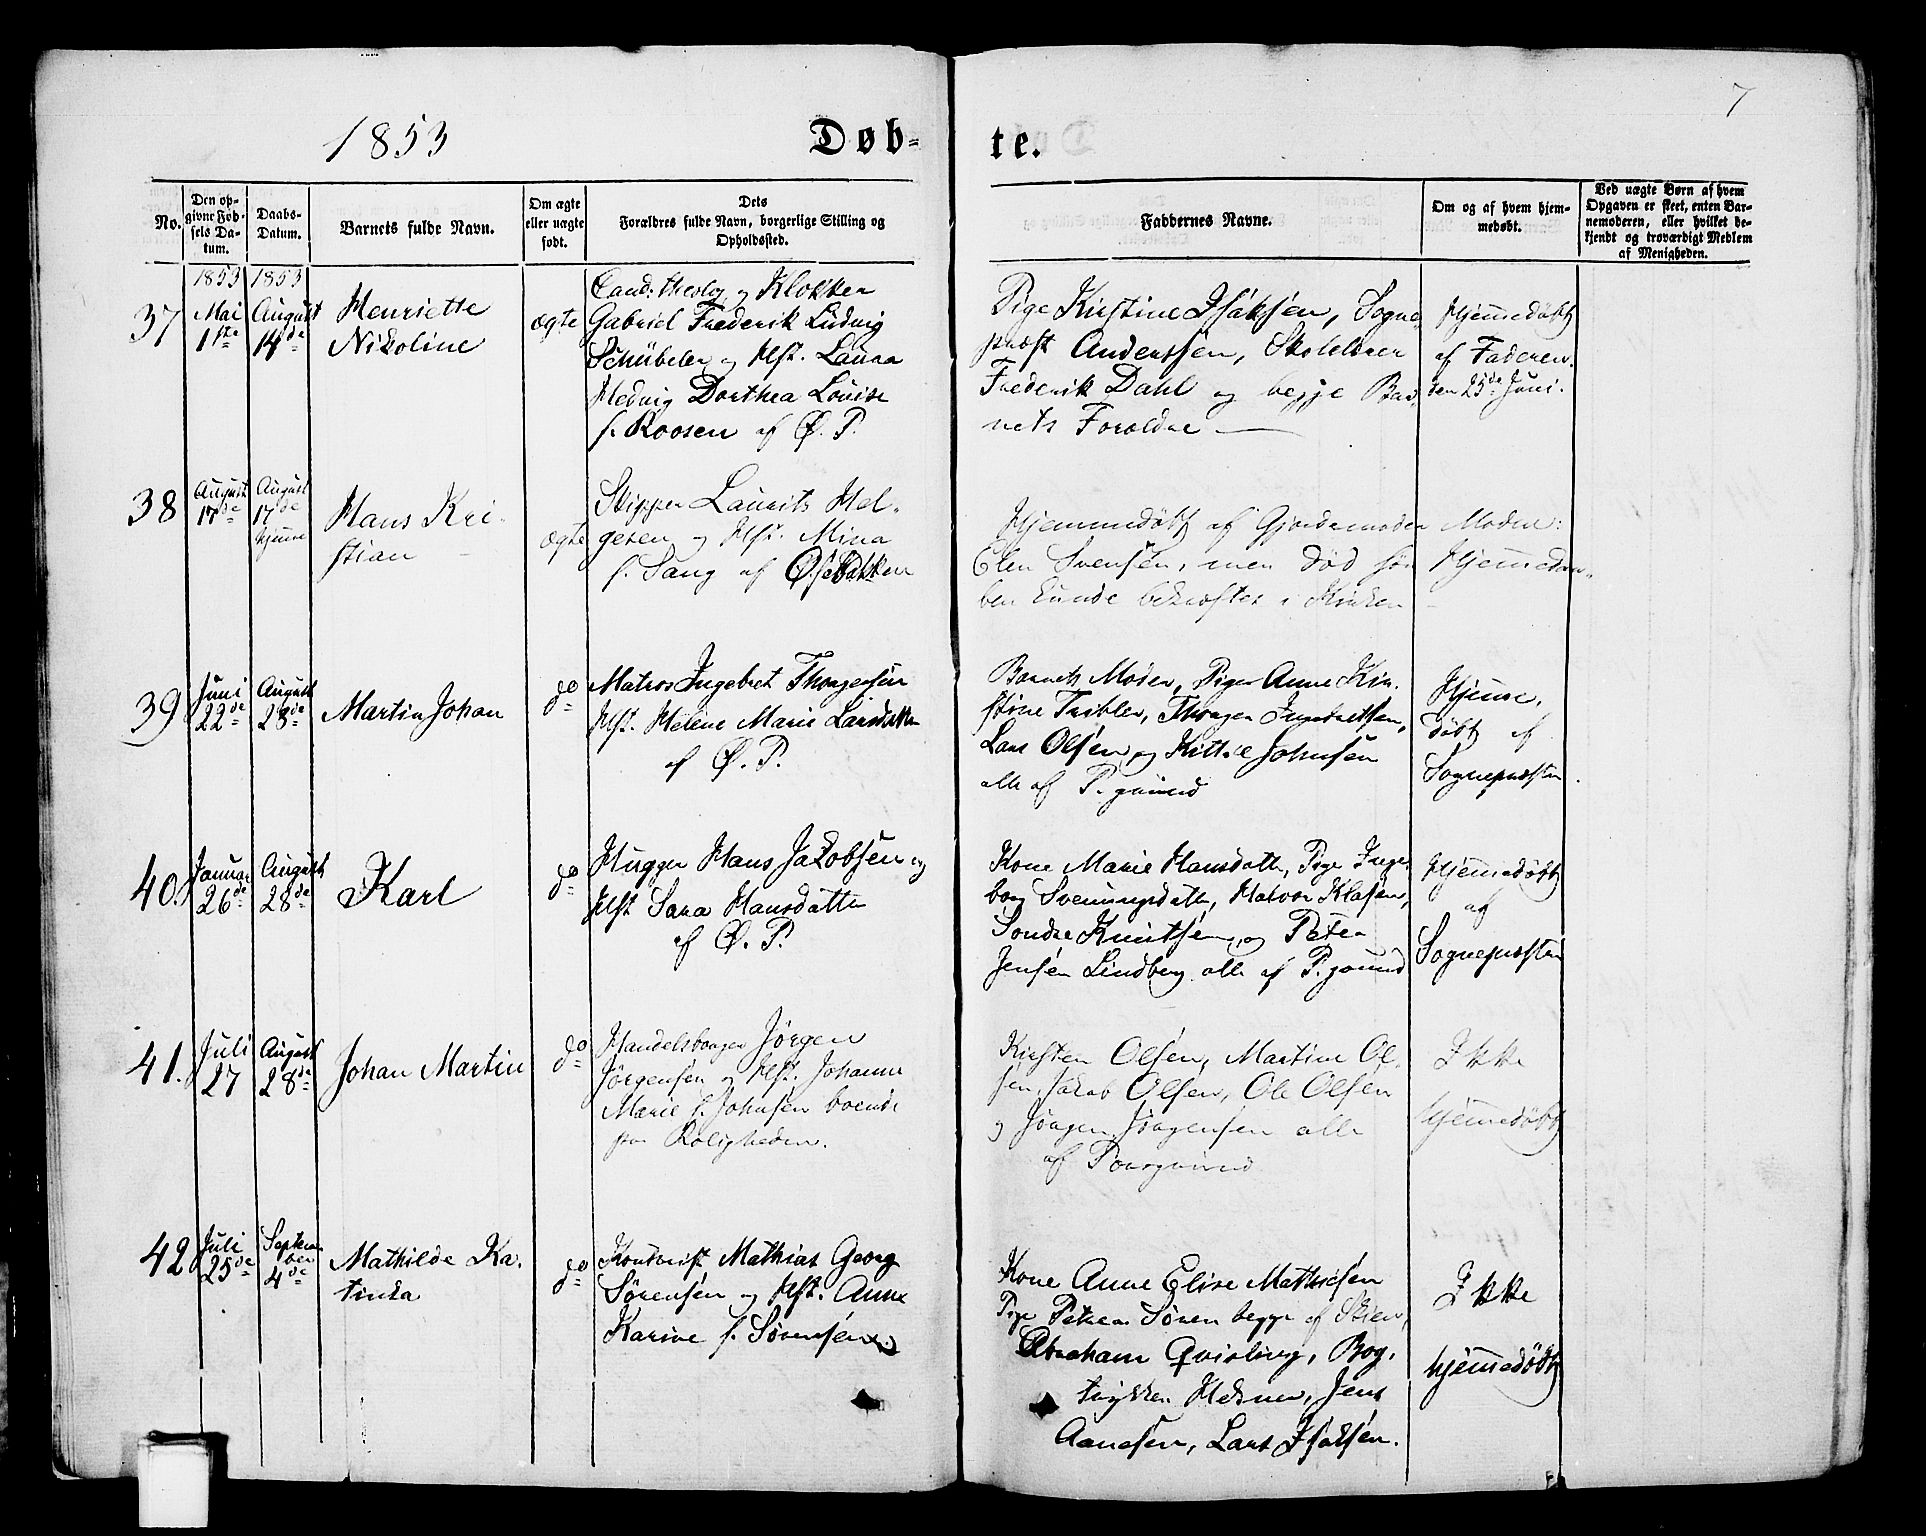 7
1853
Døb-
te.
No.
Den op-
givne Fød-
sels Da-
tum.
Daabs-
Datum.
Barnets fulde Navn.
Om ægte
eller uægte
født.
Dets
Forældres fulde Navn, borgerlige Stilling og
Opholdssted.
Faddernes Navne.
Om og af hvem hjem-
medøbt.
Ved uægte Børn af hvem
Opgaven er skeet, enten Bar-
nemoderen, eller hvilket be-
kjendt og troværdigt Medlem
af Menigheden.
37
1853
Mai
1ste
1853
August
14de
Henriette
Nikoline
ægte
Cand: theolog. og Klokker
Gabriel Frederik Ludvig
Schübeler og Hst. Laura
Hedvig Dorthea Louise
f. Roosen af Ø. P.
Pige Kirstine Isaksen, Sogne-
præst Anderssen, Skolelærer
Frederik Dahl og begge Bar-
nets Forældre
Hjemmedøbt
af Faderen
den 25de Juni.
38
August
17de
August
17de
hjemme
Hans Kri-
stian
ægte
Skipper Laurits Hel-
gesen og Hst. Mina
f. Sang af Osebakken
Hjemmedøbt af Gjordemoder
Elen Svensen, men død før
den kunde bekræftes i Kirken
Moder:
39
Juni
22de
August
28de
Martin Johan
do
Matros Ingebret Thorgersen
Hst. Helene Marie Larsdatter
af Ø. P.
Barnets Moder, Pige Anne Kir-
stine Trebler, Thorger Ingebretsen,
Lars Olsen og Kittil Johnsen
alle af P. grund
Hjemme-
døbt af
Sognepræsten
40.
Januar
26de
August
28de
Karl
do
Hugger Hans Jakobsen og
Hst Sara Hansdatter
af Ø. P.
Kone Marie Hansdatter, Pige Inge-
borg Svenningsdatter, Halvor Klasen,
Sondre Knutsen og Peter
Jensen Lindberg alle af P. grund
Hjemmedøbt
af
Sognepræsten
41.
Juli
27
August
28de
Johan Martin
do
Handelsborger Jørgen
Jørgensen og Hst. Johanne
Marie f. Johnsen boende
paa Roligheden.
Kirsten Olsen, Martine Ol-
sen, Jakob Olsen, Ole Olsen
og Jørgen Jørgensen alle
af Porsgrund
Ikke
hjemmedøbt
42
Juli
25de
Septem-
ber
4de
Mathilde Ka-
tinka
do
Kontorist Mathias Georg
Sørensen og Hst. Anne
Karine f. Sørensen
Kone Anne Elise Mathiesen
Pige Petrea Søren begge af Skien,
Abraham Qvisling, Bog-
trykker Jens
Aanesen, Lars Isaksen.
Ikke
hjemmedøbt